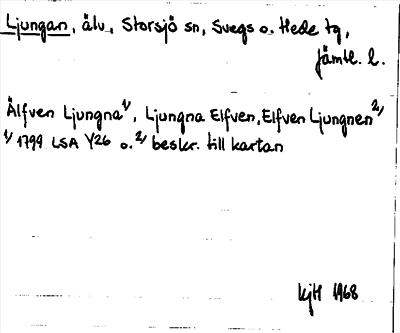 Ljungan, älv, Storsjö sn, Svegs o. Hede tg,
Jämtl. l.
Älfven Ljungna 1/, Ljungna Elfven, Elfven Ljungnen 2/
1/ 1799 LSA Y26 o. 2/ beskr. till kartan
KJH 1968